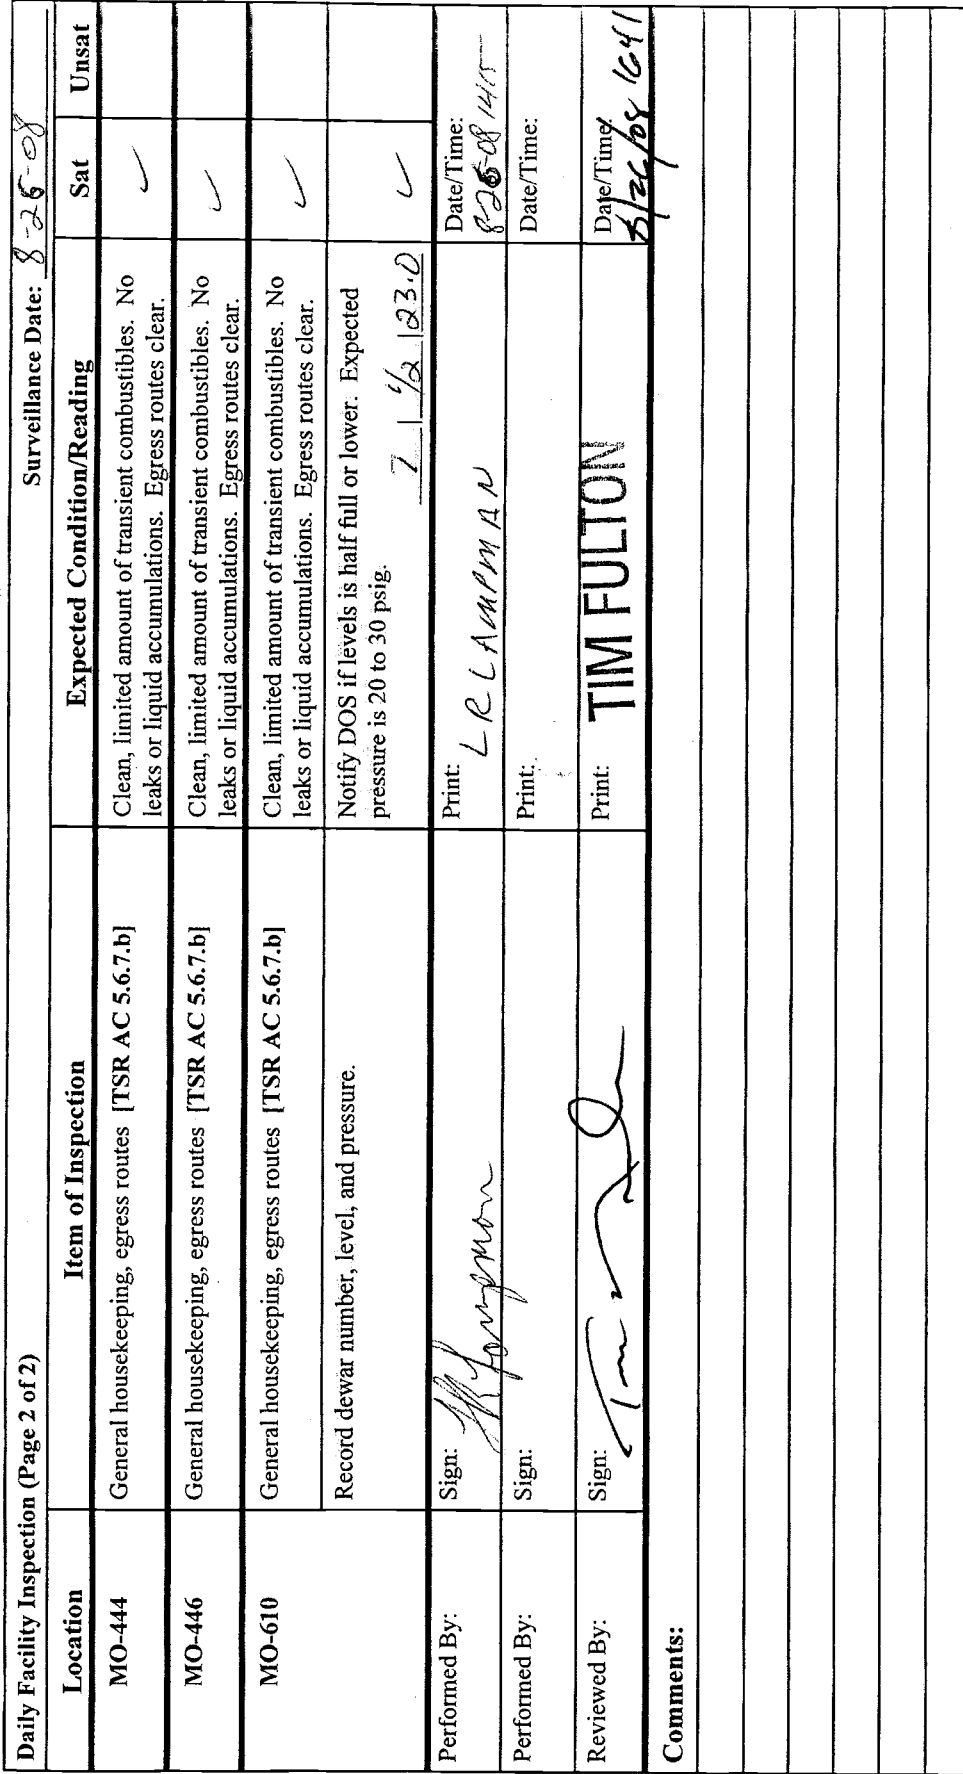 Daily Facility Inspection (Page 2 of 2) Surveillance Date: 8-26-08
Location Item of Inspection Expected Condition/Reading Sat Unsat
MO-444 General housekeeping, egress routes [TSR AC 5.6.7.b] Clean, limited amount of transient combustibles. No ✓
leaks or liquid accumulations. Egress routes clear.
MO-446 General housekeeping, egress routes [TSR AC 5.6.7.b] Clean, limited amount of transient combustibles. No ✓
leaks or liquid accumulations. Egress routes clear.
MO-610 General housekeeping, egress routes [TSR AC 5.6.7.b] Clean, limited amount of transient combustibles. No ✓
leaks or liquid accumulations. Egress routes clear.
Record dewar number, level, and pressure. Notify DOS if levels is half full or lower. Expected ✓
pressure is 20 to 30 psig. 7 | 1/2 | 23.0
Performed By: Sign: LR Lampman Print: L R LAMPMAN Date/Time: 8-26-08 1415
Performed By: Sign: Print: Date/Time:
Reviewed By: Sign: Print: TIM FULTON Date/Time: 8/26/08 1641
Comments: